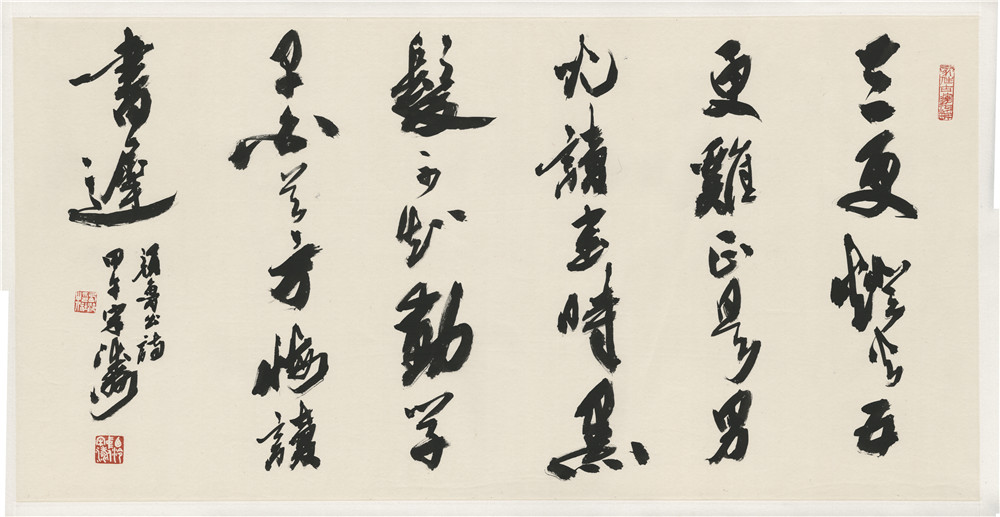 三更燈火五
更雞正是男
兒讀書時黑
髮不知勤學
早白首方悔讀
書遲
顏魯公詩
甲午宋